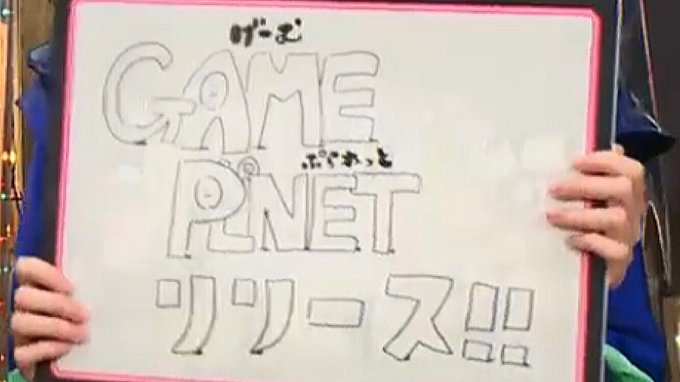 げーむ
GAME
ぷらねっと
PLNET
リリース!!